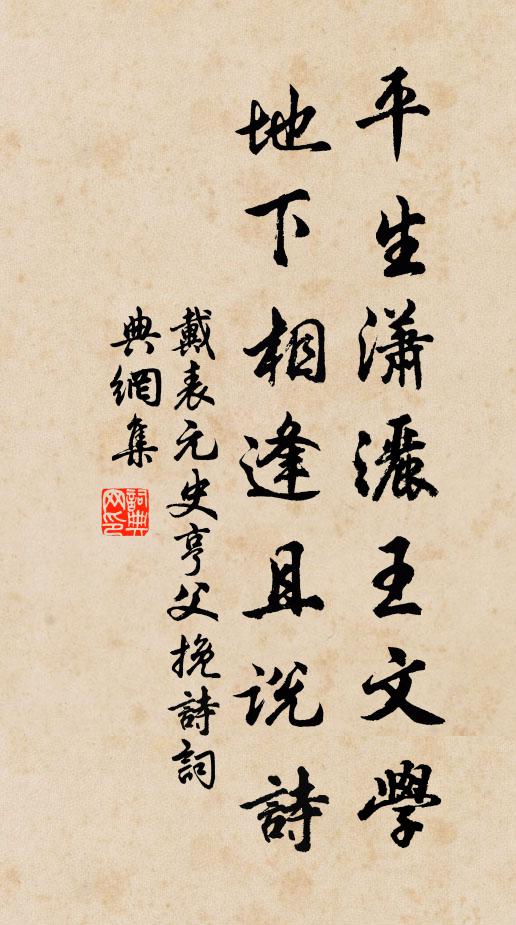 平生瀟灑王文學
地下相逢且說詩
戴表元史亨父挽詩詞
典網集
詞典網印